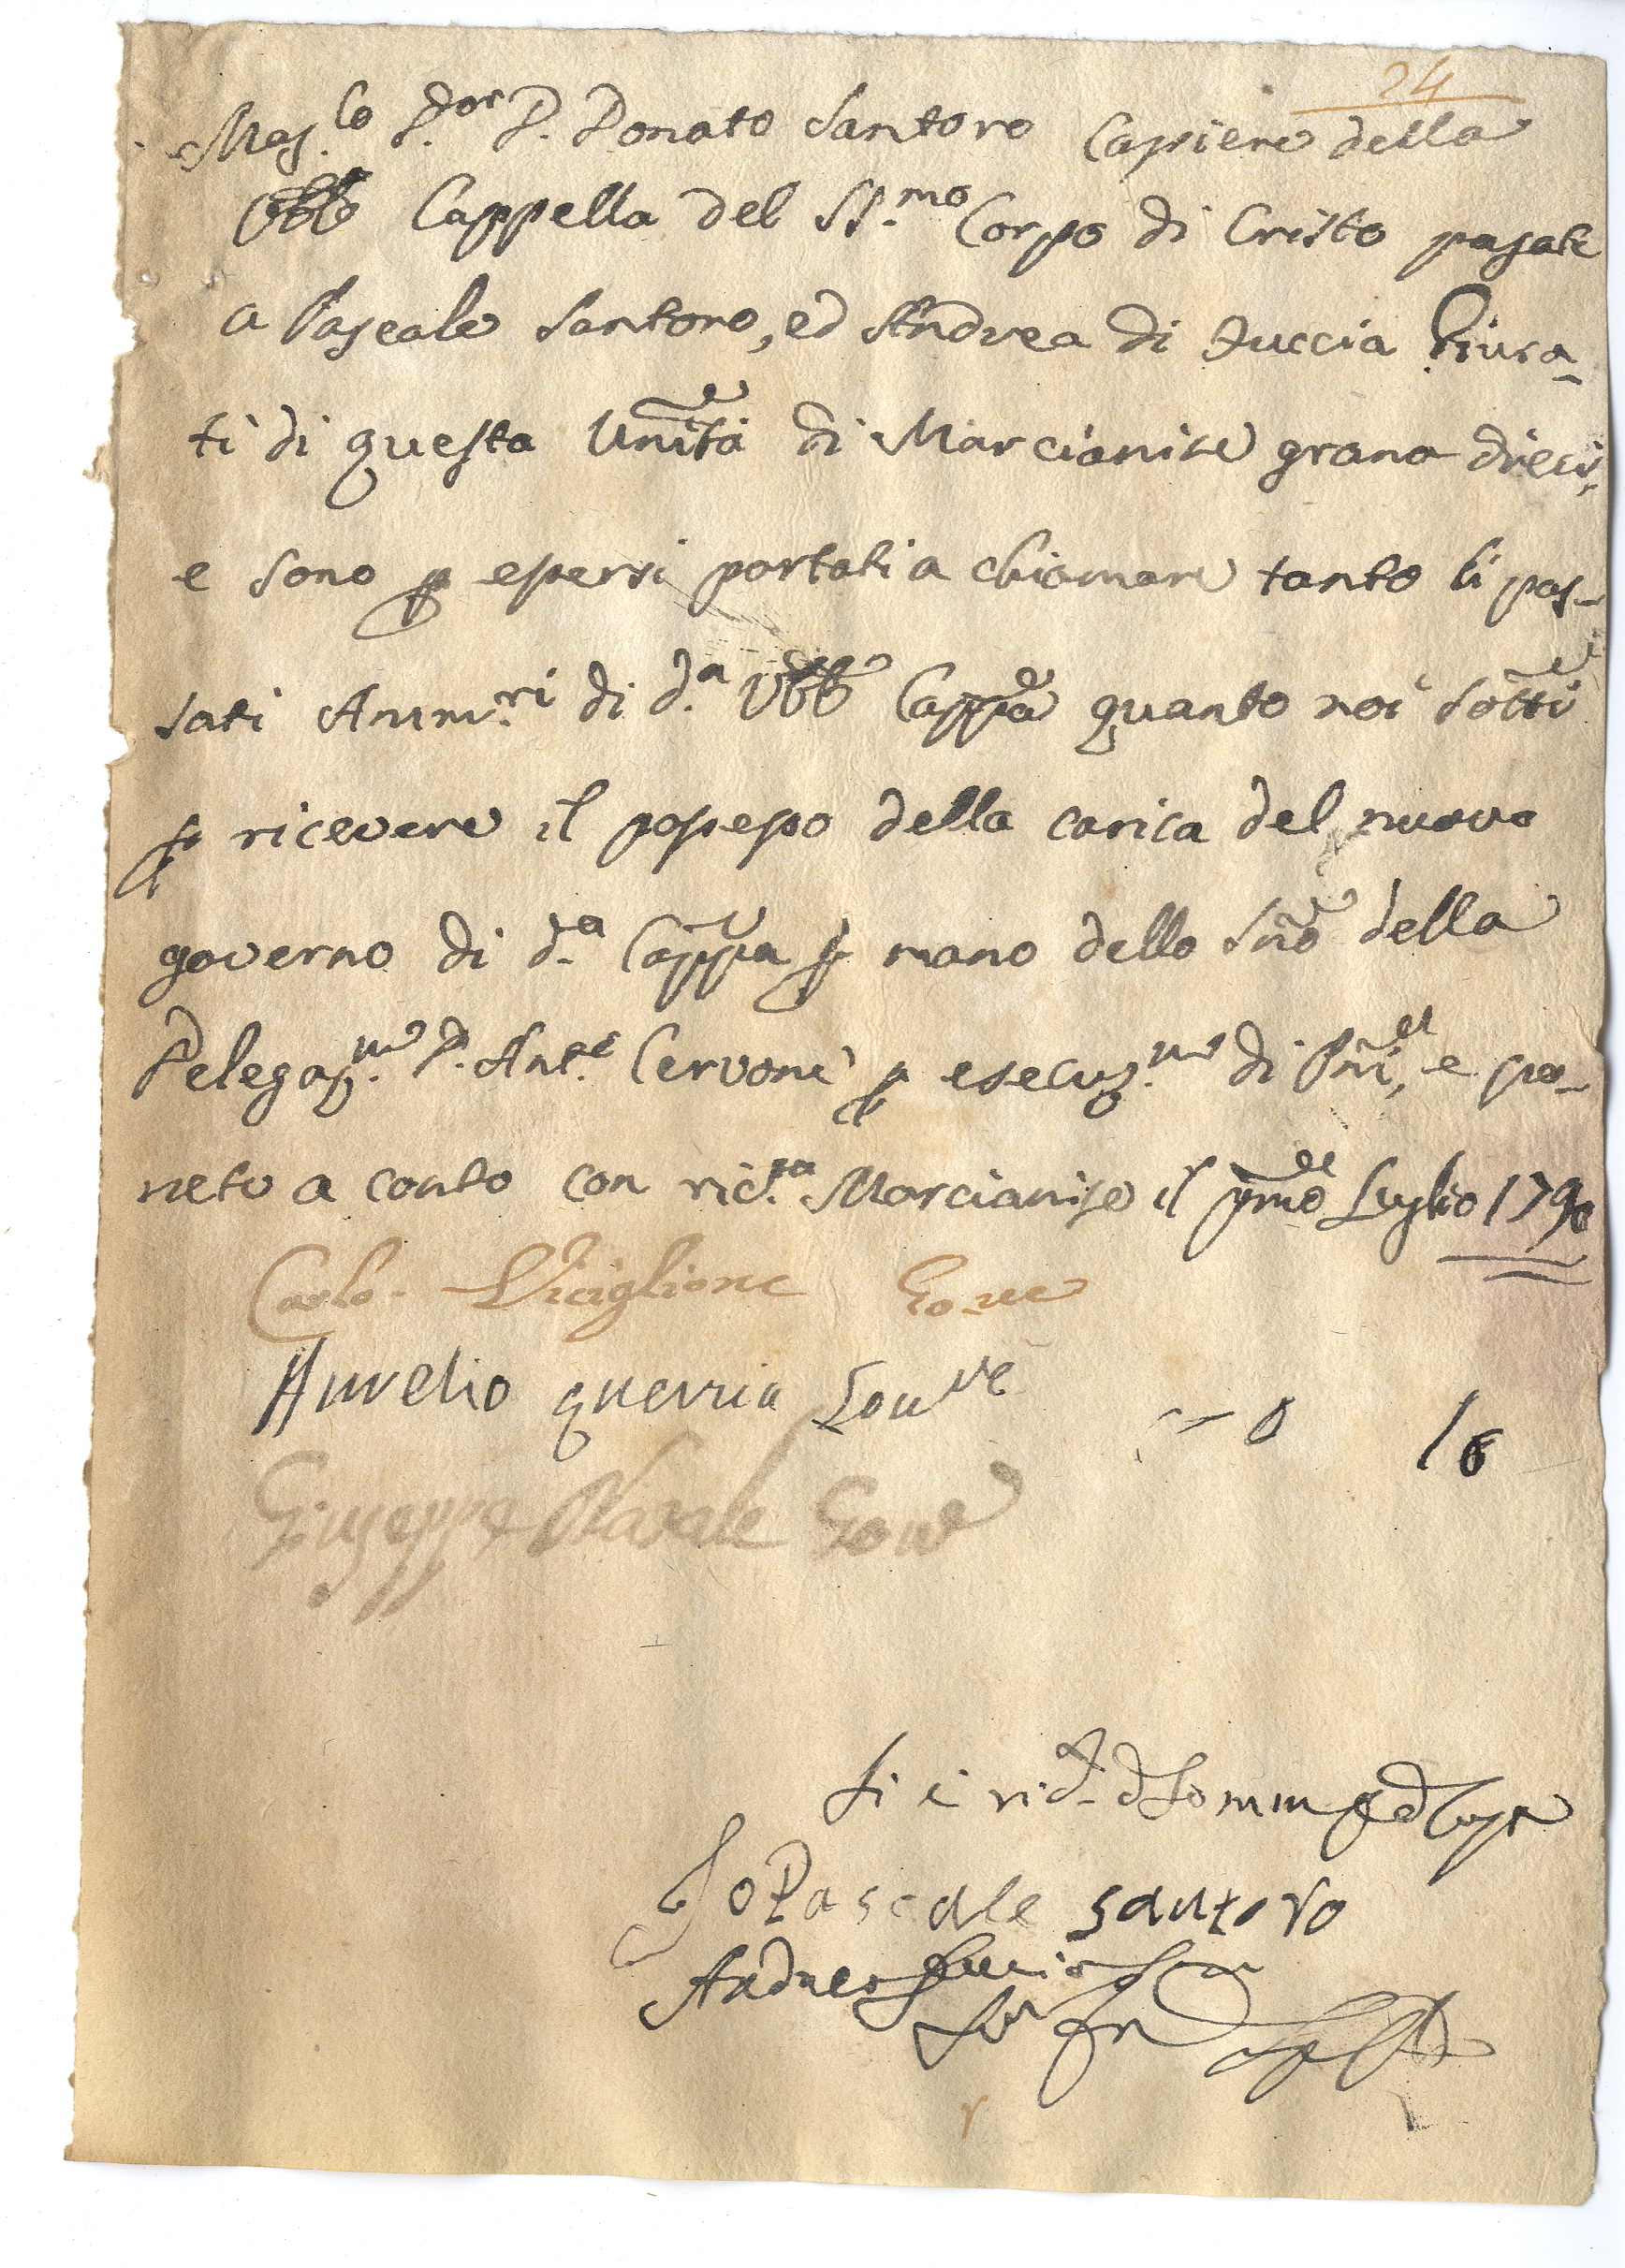 24
Mag.co D.or D. Donato Santoro Cassiere della
Cappella del SS.mo Corpo di Cristo pagate
a Pascale Santoro, ed Andrea di Iuccia Giura-
ti di questa Unità di Marcianise grana dieci,
e sono p essersi portati a chiamare tanto li pas-
sati Amm.ri di d.a Cappa quanto noi sotti
p ricevere il possesso della carica del nuovo
governo di d.a Cappa p mano dello Sno della
Delegaz.ne D. Ant.o Cervone p esecuz.ne di Pnti, e po-
neto a conto con ric.ta Marcianise il pmo Luglio 1790
Carlo Viciglione Go.re
Aurelio guerria Gou.re
Giuseppe Navale Gou.e
0 10
Io Pascale santoro
Andrea